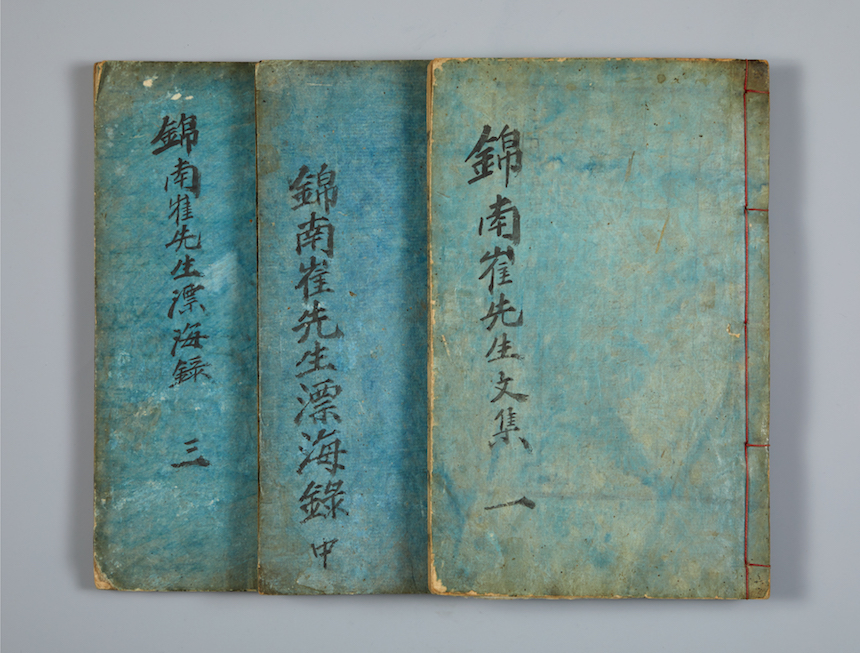 錦南崔先生文集 一
錦南崔先生漂海錄 中
錦南崔先生漂海錄 三